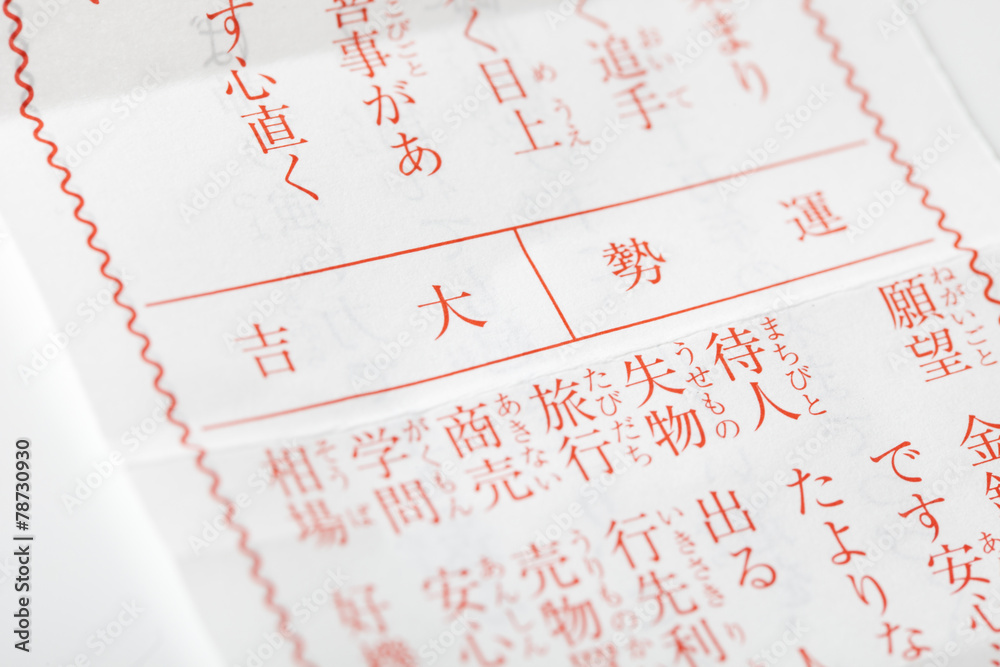 まり
く追手
く目上
事があ
す心直く
運勢
大吉
願望
待人
失物
旅行
商売
学問
相場
金
です安心
たよりな
出る
行先利
売物
安心
好
Adobe Stock | #78730930